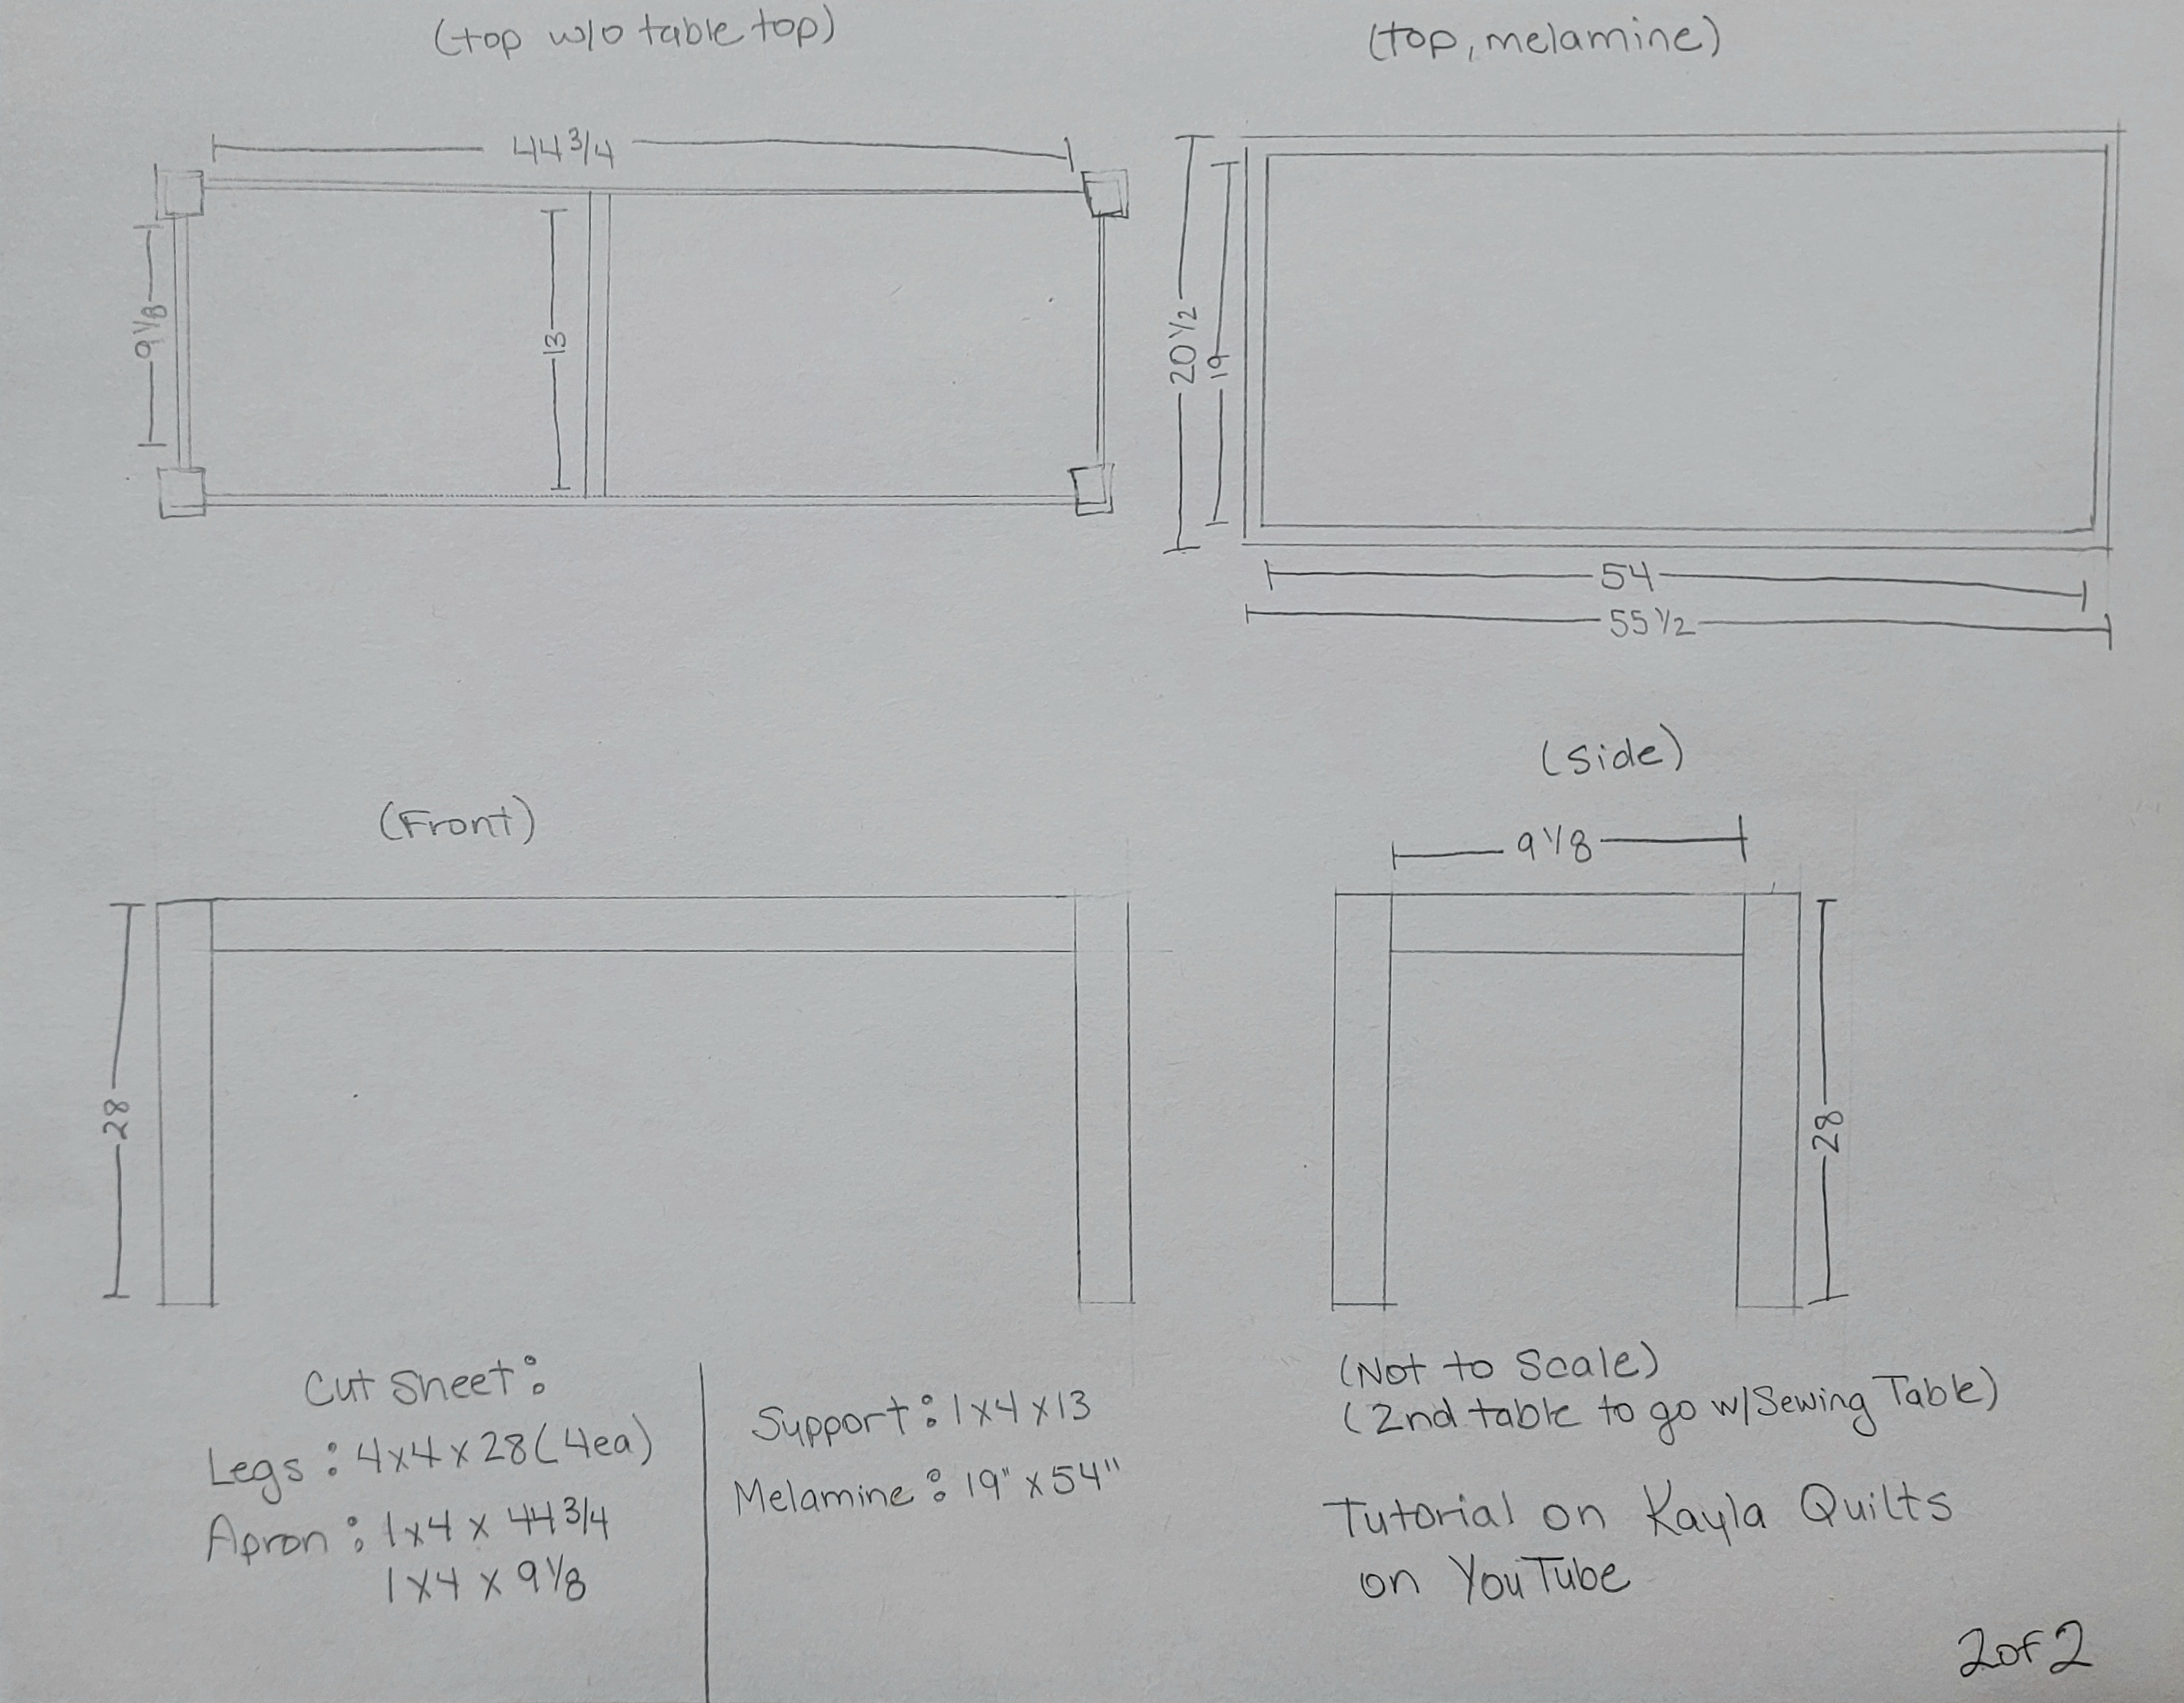 (top w/o table top)
(top, melamine)
44 3/4
9 1/8
13
20 1/2
19
54
55 1/2
(Front)
(side)
9 1/8
28
28
Cut Sheet:
Legs: 4x4x28 (4ea)
Apron: 1x4 x 44 3/4
1x4 x 9 1/8
Support: 1x4x13
Melamine: 19" x 54"
(Not to Scale)
(2nd table to go w/Sewing Table)
Tutorial on Kayla Quilts
on YouTube
2 of 2